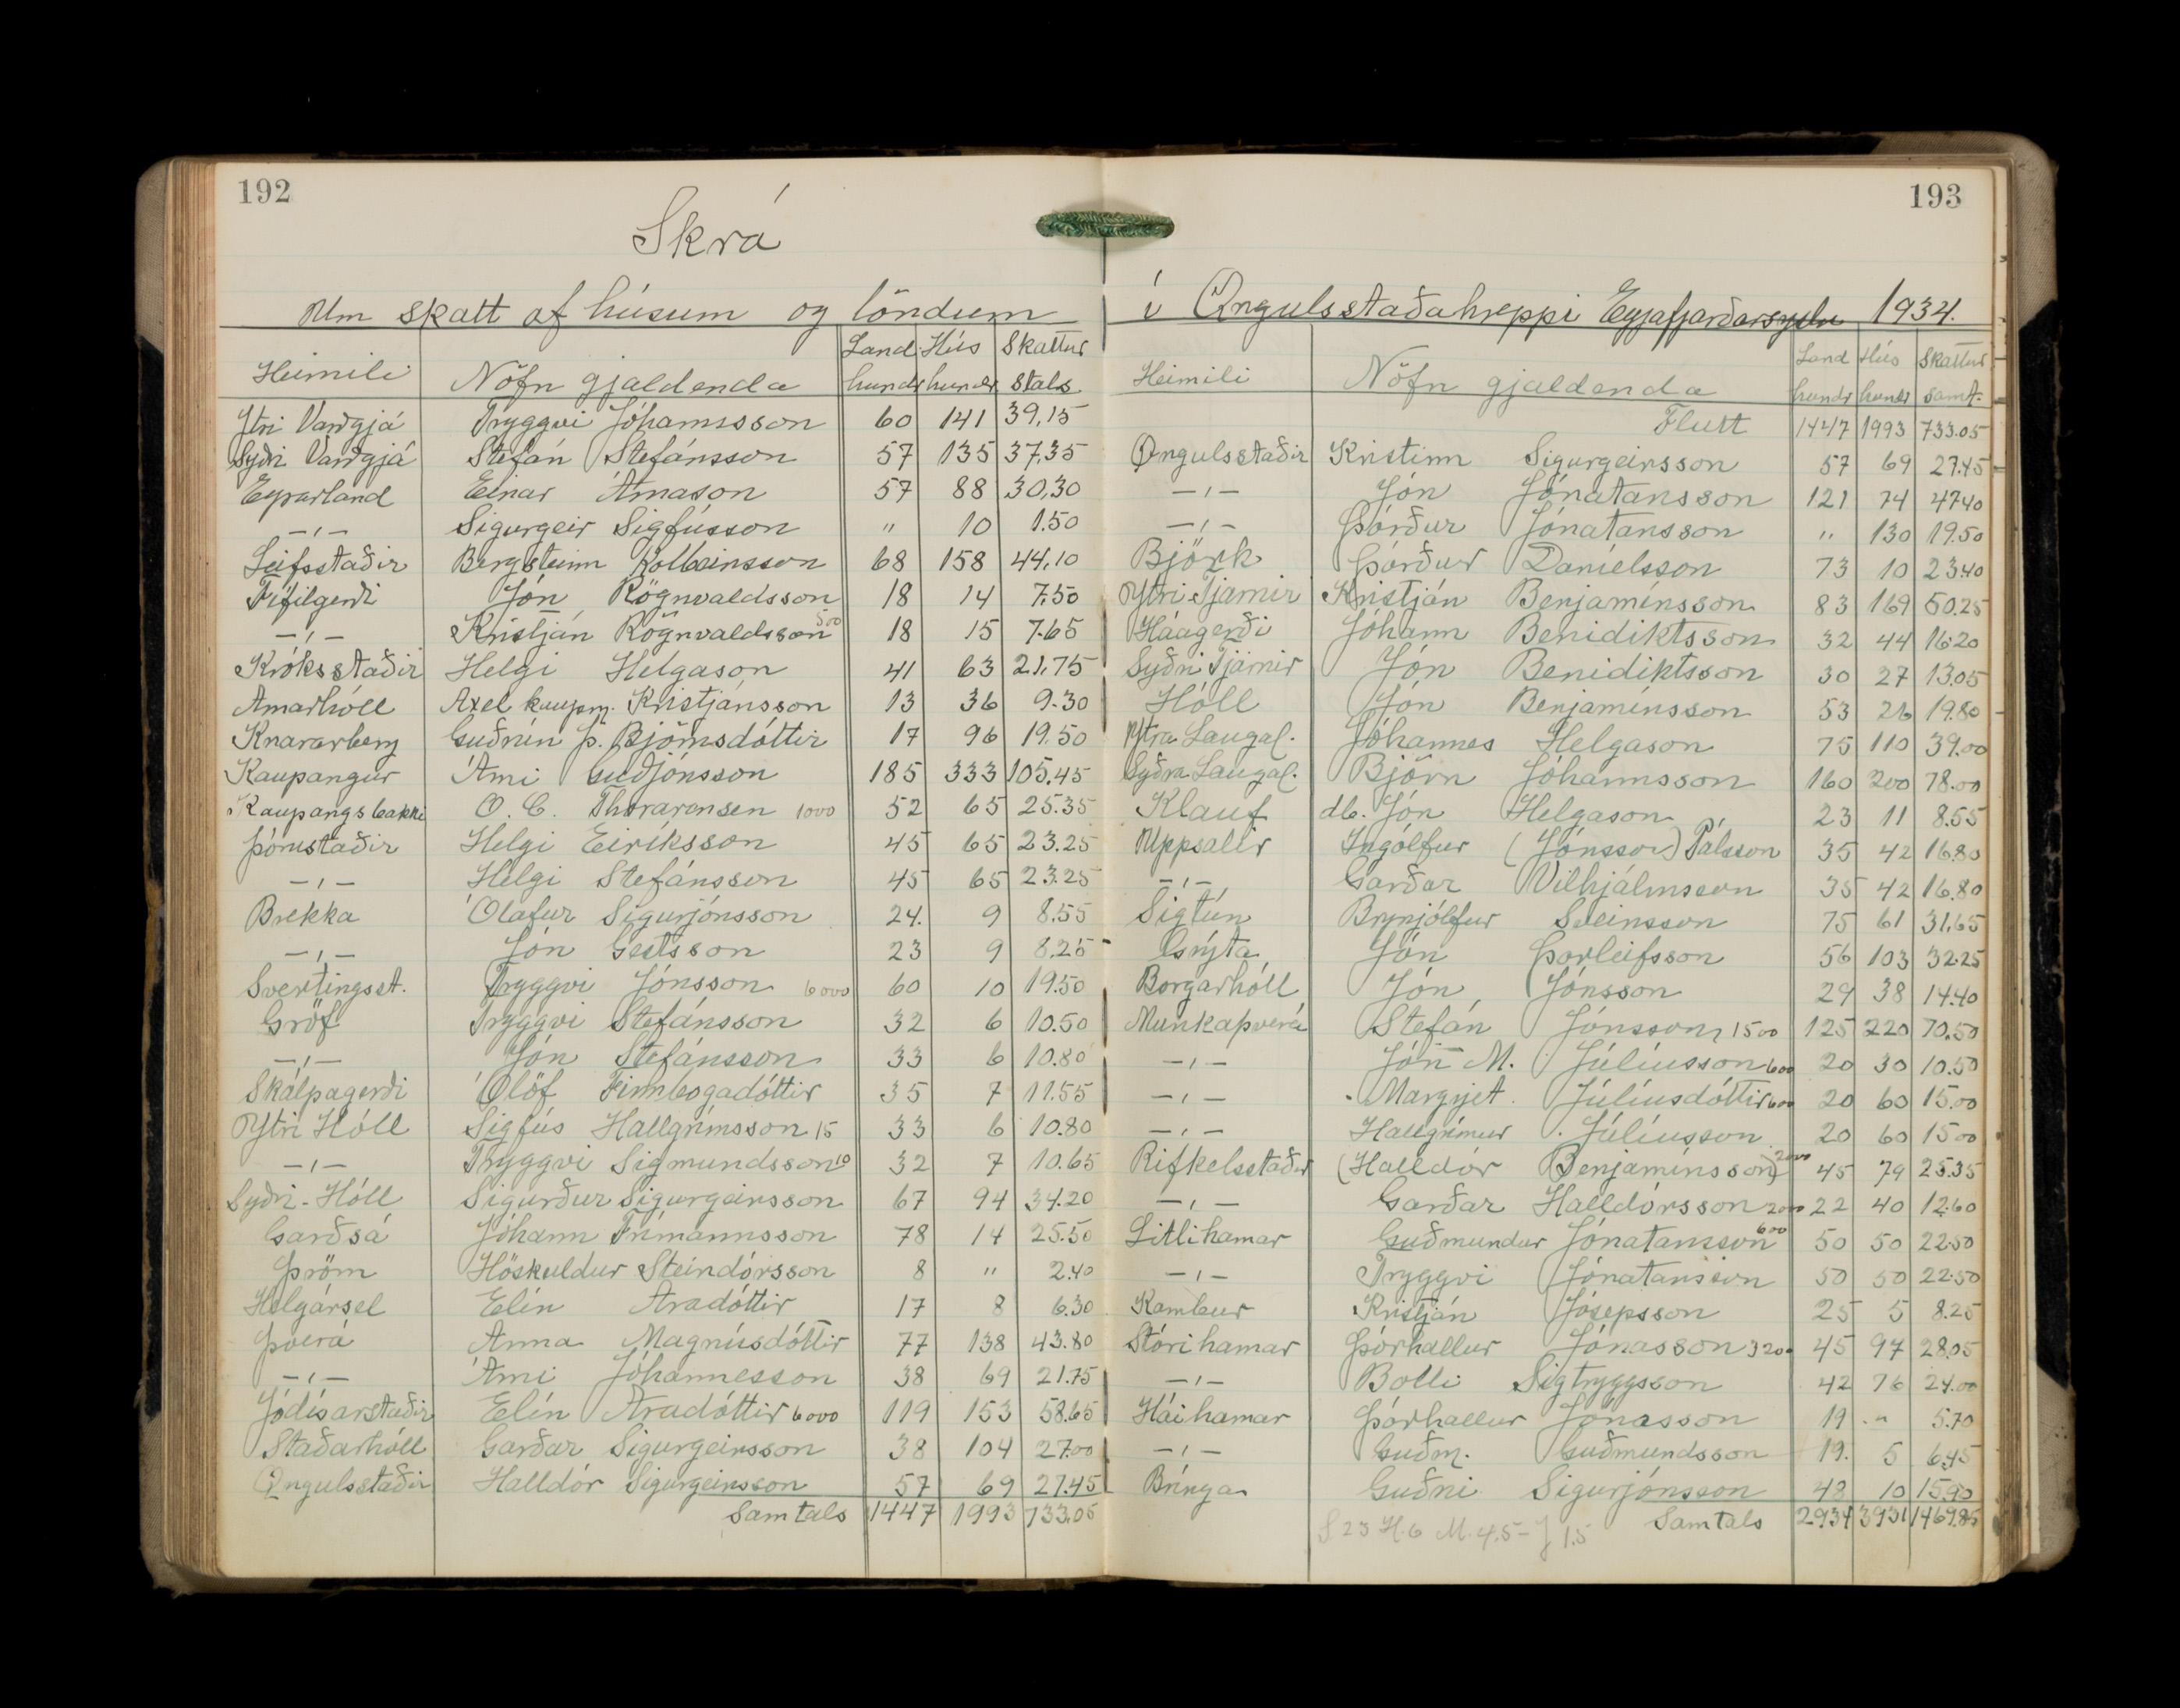 192
Skrá
Um skatt af húsum og löndum
Heimili Nöfn gjaldenda Land hundr Hús hundr Skattur stals
Ytri Varðgjá Tryggvi Jóhannsson 60 141 39,15
Syðri Varðgjá Stefán Stefánsson 57 135 37,35
Eyrarland Einar Árnason 57 88 30,30
—„— Sigurgeir Sigfússon " 10 1.50
Leifsstaðir Bergsteinn Kolbeinsson 68 158 44,10
Fífilgerði Jón Rögnvaldsson 18 14 7,50
—„— Kristján Rögnvaldsson 500 18 15 7.65
Króksstaðir Helgi Helgason 41 63 21,75
Arnarhóll Axel kaupm. Kristjánsson 13 36 9.30
Knararberg Guðrún Þ. Björnsdóttir 17 96 19.50
Kaupangur Árni Guðjónsson 185 333 105.45
Kaupangsbakki O. C. Thorarensen 1000 52 65 25.35
Þórustaðir Helgi Eiríksson 45 65 23.25
—„— Helgi Stefánsson 45 65 23.25
Brekka Ólafur Sigurjónsson 24. 9 8.55
—„— Jón Gestsson 23 9 8.25
Svertingsst. Tryggvi Jónsson 6000 60 10 19.50
Gröf Tryggvi Stefánsson 32 6 10.50
—„— Jón Stefánsson 33 6 10.80
Skálpagerði Ólöf Finnbogadóttir 35 7 11.55
Ytri Hóll Sigfús Hallgrímsson 15 33 6 10.80
—„— Tryggvi Sigmundsson 10 32 7 10.65
Syðri-Hóll Sigurður Sigurgeirsson 67 94 34.20
Garðsá Jóhann Frímannsson 78 14 25.50
Þröm Höskuldur Steindórsson 8 " 2.40
Helgársel Elín Aradóttir 17 8 6.30
Þverá Anna Magnúsdóttir 77 138 43.80
—„— Árni Jóhannesson 38 69 21.75
Jódísarstaðir Elín Aradóttir 6000 119 153 58.65
Staðarhóll Garðar Sigurgeirsson 38 104 27.00
Öngulsstaðir Halldór Sigurgeirsson 57 69 27.45
Samtals 1447 1993 733.05
193
í Öngulsstaðahreppi Eyjafjarðarsýslu 1934.
Heimili Nöfn gjaldenda Land hundr Hús hundr Skattur samt.
Flutt 1447 1993 733.05
Öngulsstaðir Kristinn Sigurgeirsson 57 69 27.45
—„— Jón Jónatansson 121 74 47.40
—„— Þórður Jónatansson " 130 19.50
Björk Þórður Daníelsson 73 10 23.40
Ytri Tjarnir Kristján Benjamínsson 83 169 50.25
Háagerði Jóhann Benidiktsson 32 44 16.20
Syðri Tjarnir Jón Benidiktsson 30 27 13.05
Hóll Jón Benjamínsson 53 26 19.80
Ytra Laugal. Jóhannes Helgason 75 110 39.00
Syðra Laugal. Björn Jóhannsson 160 200 78.00
Klauf db. Jón Helgason 23 11 8.55
Uppsalir Ingólfur (Jónsson) Pálsson 35 42 16.80
—„— Garðar Vilhjálmsson 35 42 16.80
Sigtún Brynjólfur Sveinsson 75 61 31.65
Grýta Jón Þorleifsson 56 103 32.25
Borgarhóll Jón Jónsson 29 38 14.40
Munkaþverá Stefán Jónsson 1500 125 220 70.50
—„— Jón M. Júlíusson 600 20 30 10.50
—„— Margrjet Júlíusdóttir 600 20 60 15.00
—„— Hallgrímur Júlíusson 20 60 15.00
Rifkelsstaðir (Halldór Benjamínsson) 2000 45 79 25.35
—„— Garðar Halldórsson 2000 22 40 12.60
Litlihamar Guðmundur Jónatansson 600 50 50 22.50
—„— Tryggvi Jónatansson 50 50 22.50
Kambur Kristján Jósepsson 25 5 8.25
Stórihamar Þórhallur Jónasson 3200 45 97 28.05
—„— Bolli Sigtryggsson 42 76 24.00
Háihamar Þórhallur Jónasson 19 " 5.70
—„— Guðm. Guðmundsson 19. 5 6.45
Bringa Guðni Sigurjónsson 48 10 15.90
Samtals 2934 3931 1469.85
S 23 H.6 M. 4.5- J 1.5